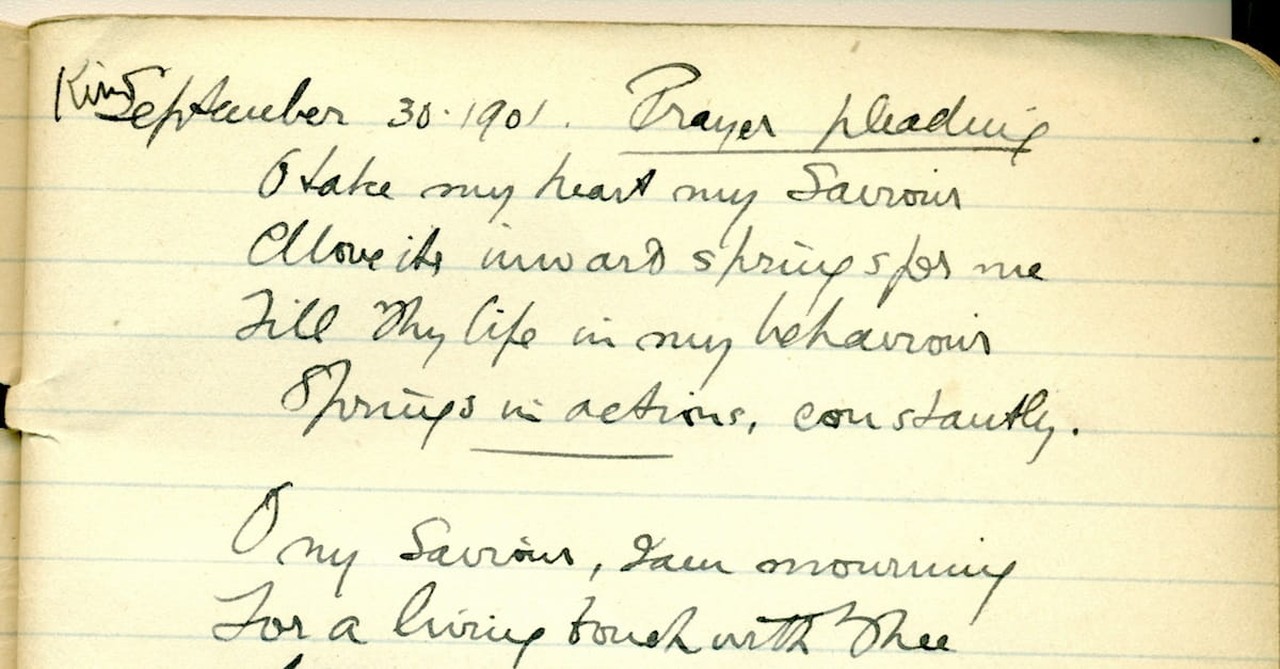 King September 30. 1901. Prayer pleading
O take my heart my Saviour
Move its inward springs for me
Till Thy life in my behaviour
Springs in actions, constantly.
O my Saviour, I am mourning
For a living touch with Thee